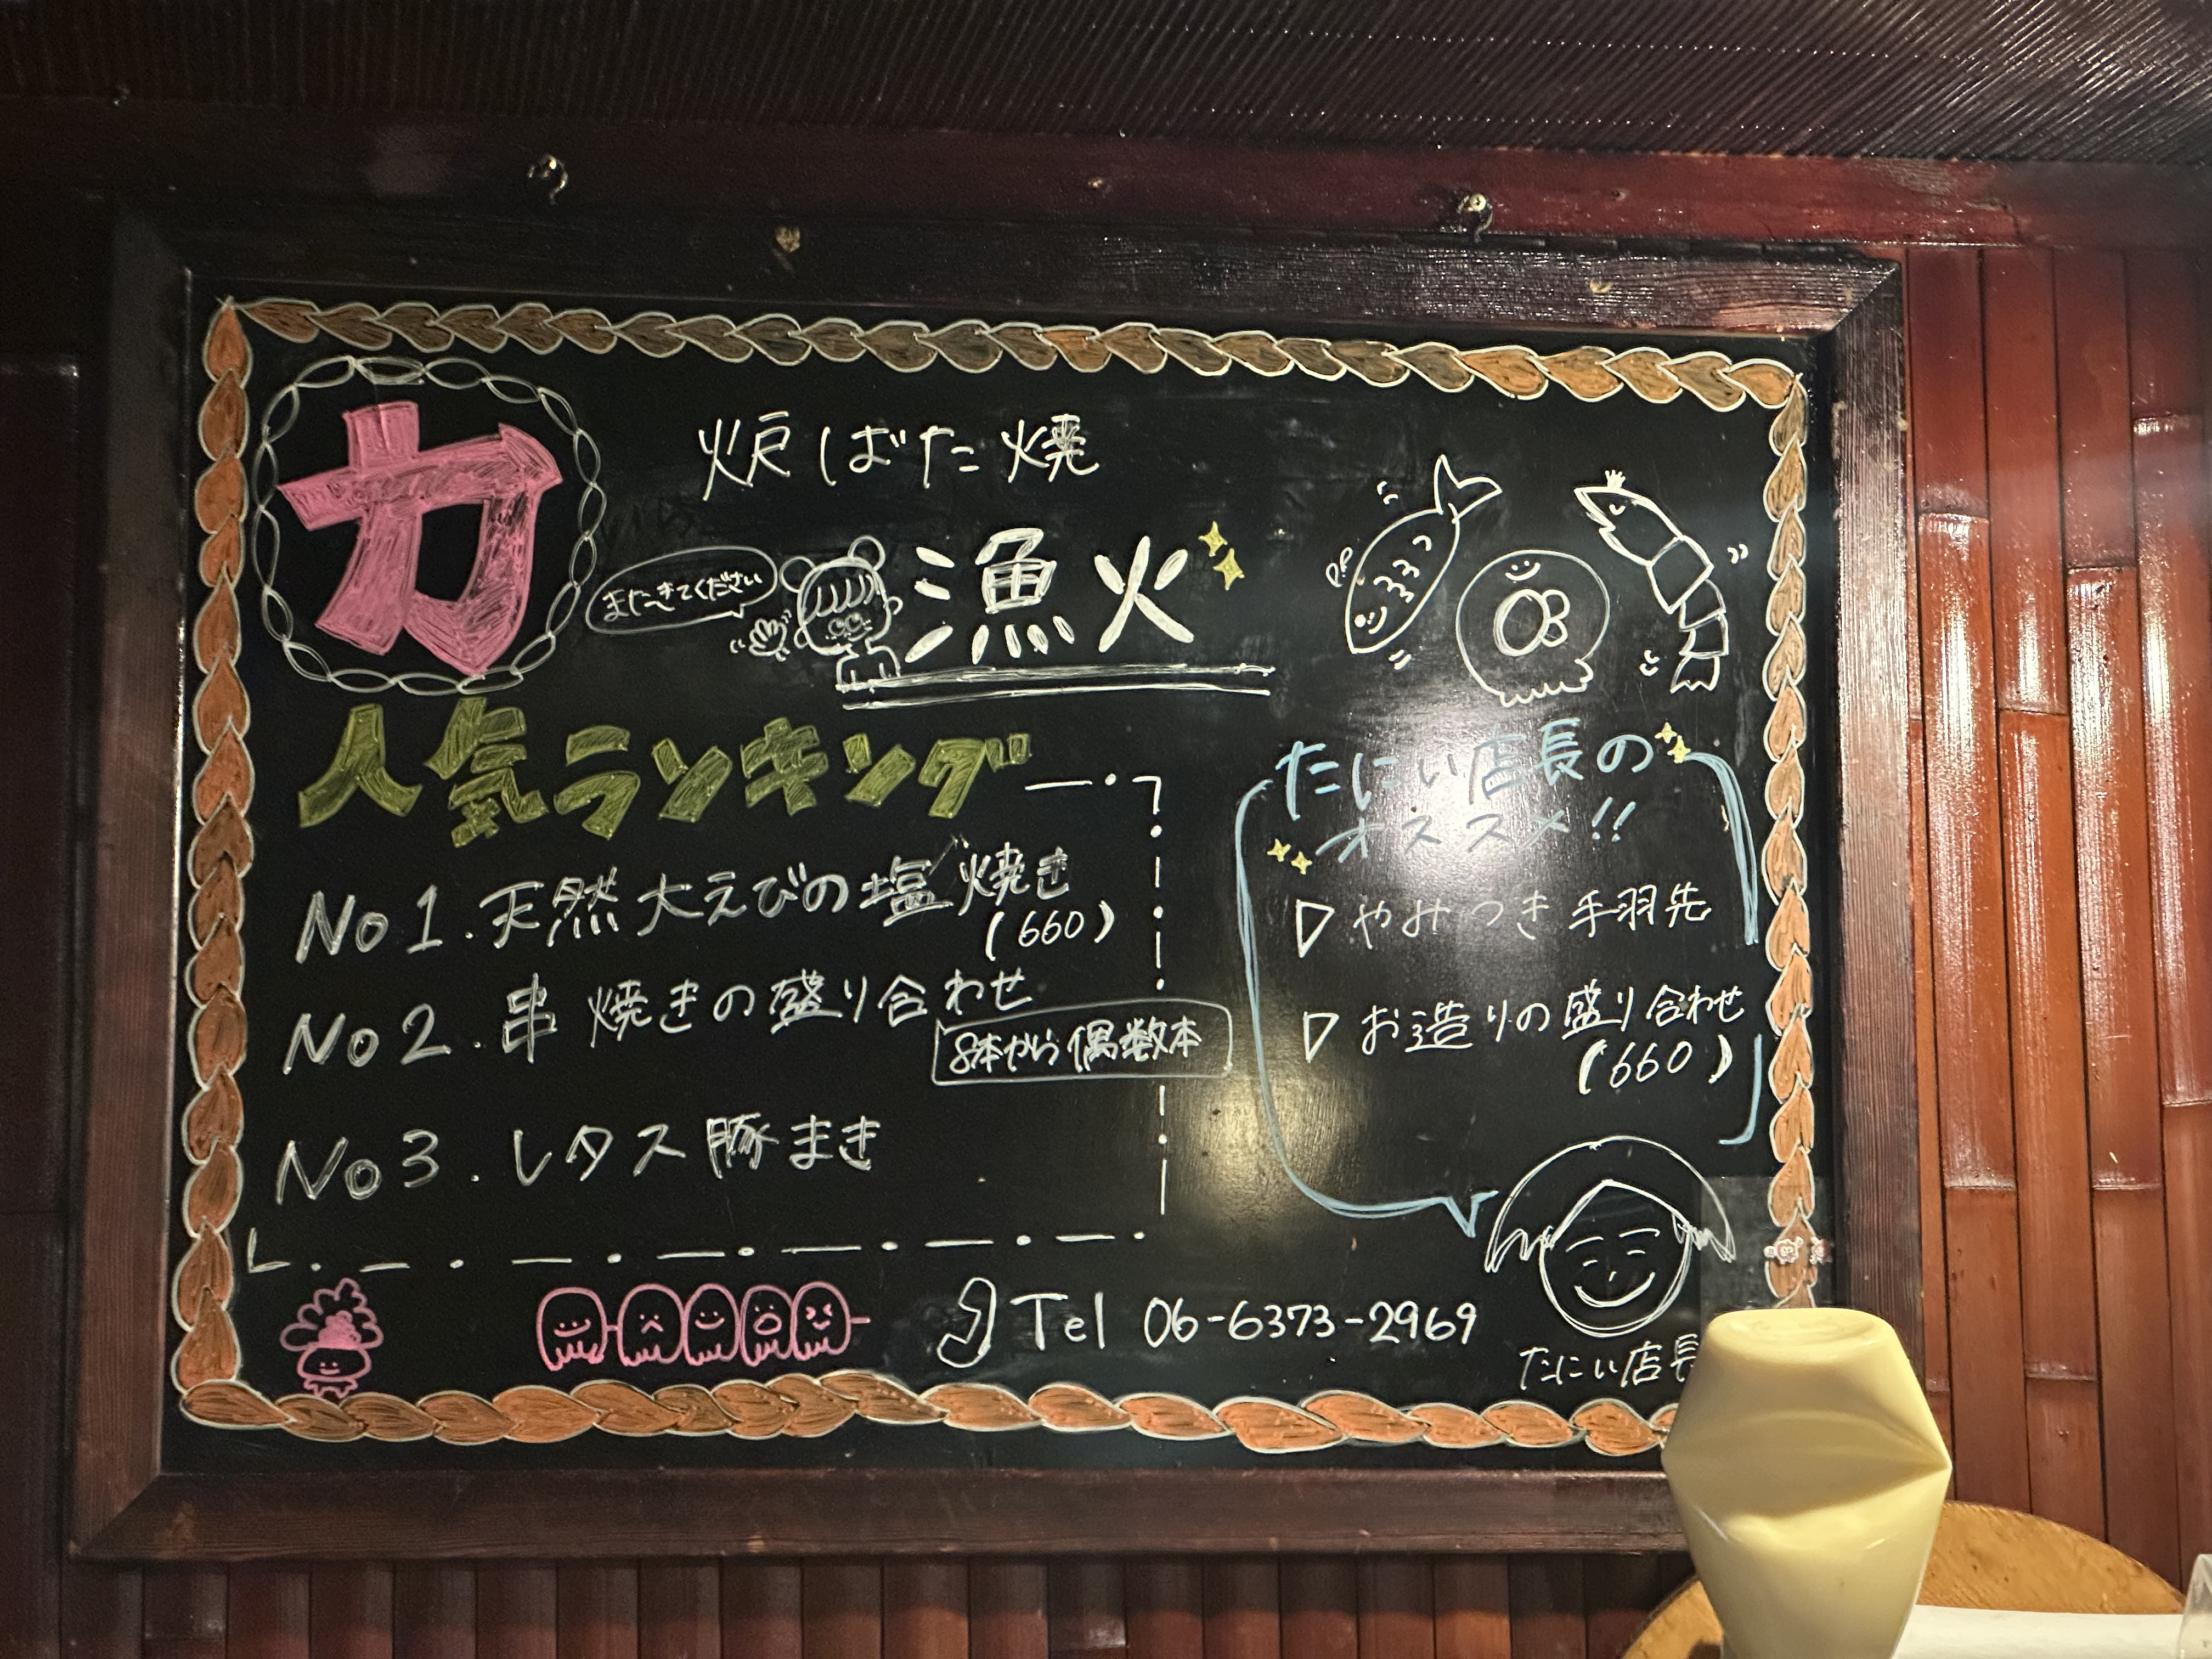 力
炉ばた焼
またきてください
漁火
人気ランキング
No1.天然大えびの塩焼き
(660)
No2.串焼きの盛り合わせ
8本から偶数本
No3.レタス豚まき
たにい店長の
オススメ!!
▷やみつき手羽先
▷お造りの盛り合わせ
(660)
Tel 06-6373-2969
たにい店長